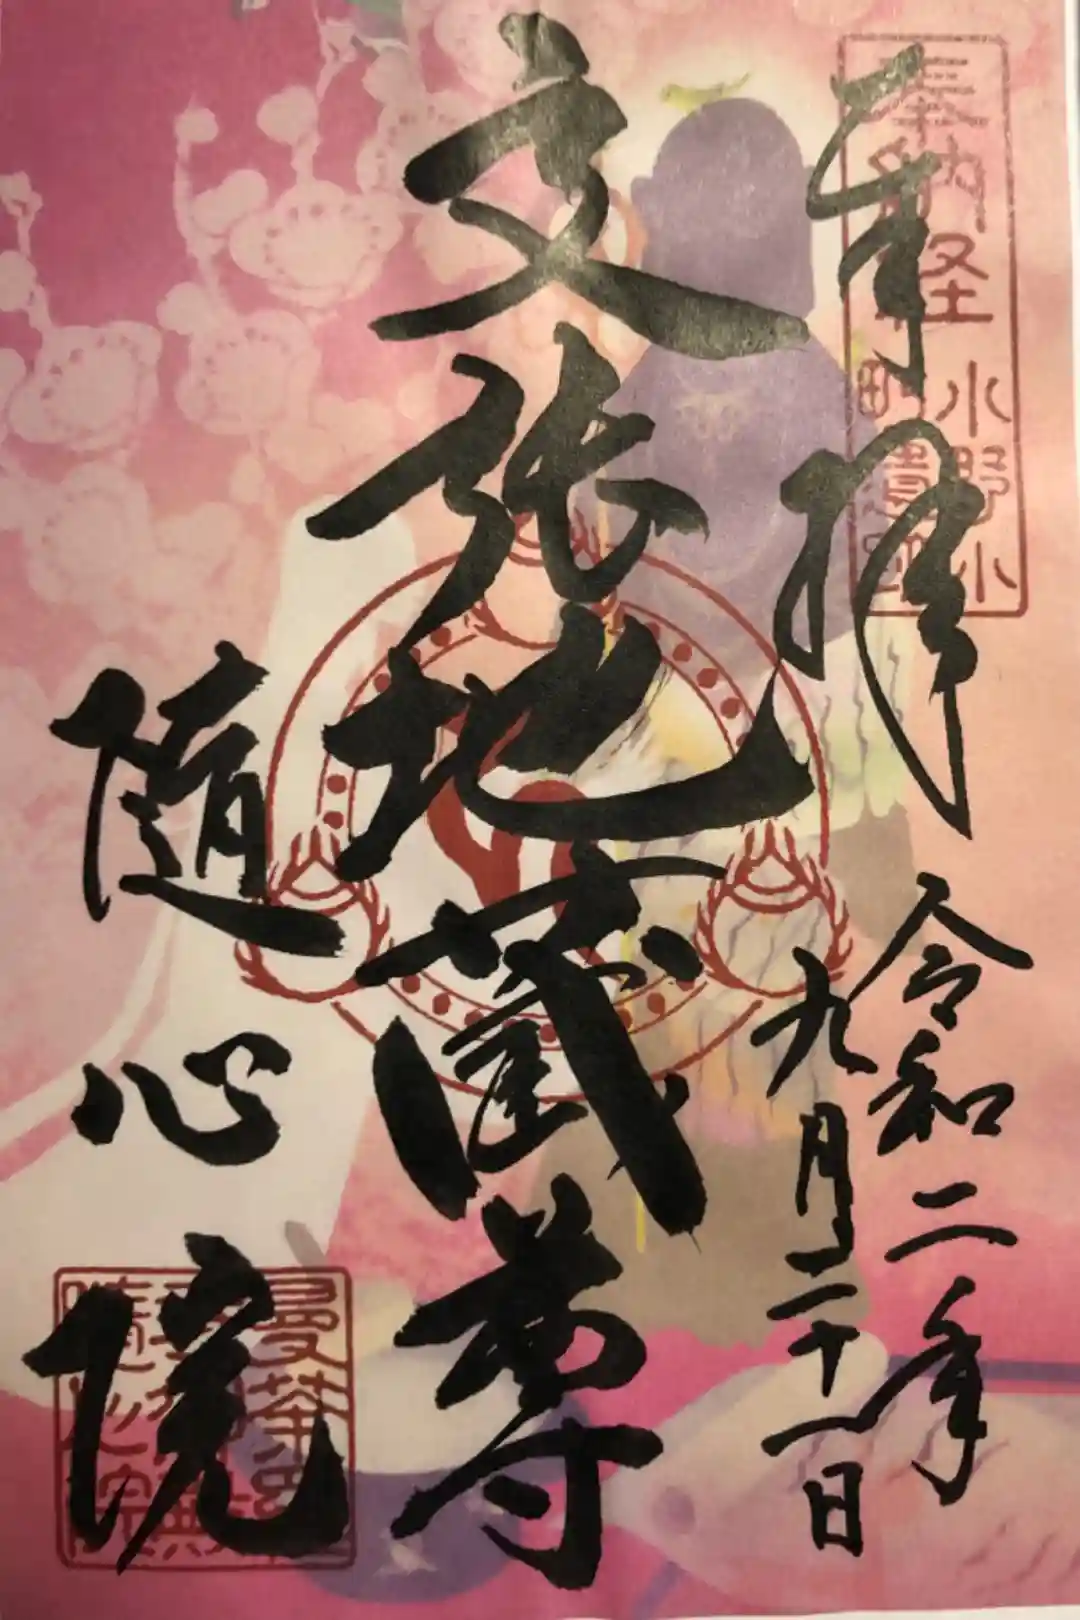 奉拝
令和二年
九月二十一日
文張地蔵尊
随心院
奉納経
小野小
町遺跡
曼荼羅
随心院